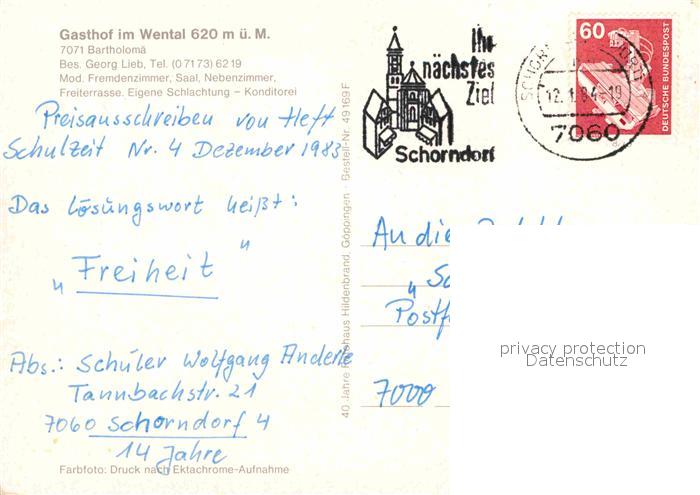 Gasthof im Wental 620 m ü. M.
7071 Bartholomä
Bes. Georg Lieb, Tel. (0 71 73) 62 19
Mod. Fremdenzimmer, Saal, Nebenzimmer,
Freiterrasse. Eigene Schlachtung – Konditorei
Preisausschreiben von Heft
Schulzeit Nr. 4 Dezember 1983
Das Lösungswort heißt:
„Freiheit"
Abs.: Schüler Wolfgang Anderle
Tannbachstr. 21
7060 Schorndorf 4
14 Jahre
Farbfoto: Druck nach Ektachrome-Aufnahme
40 Jahre Hildenbrand, Göppingen · Bestell-Nr. 49 169 F
Ihr
nächstes
Ziel
Schorndorf
12.1.84-19
7060
60
DEUTSCHE BUNDESPOST
An die
„
7000
privacy protection
Datenschutz